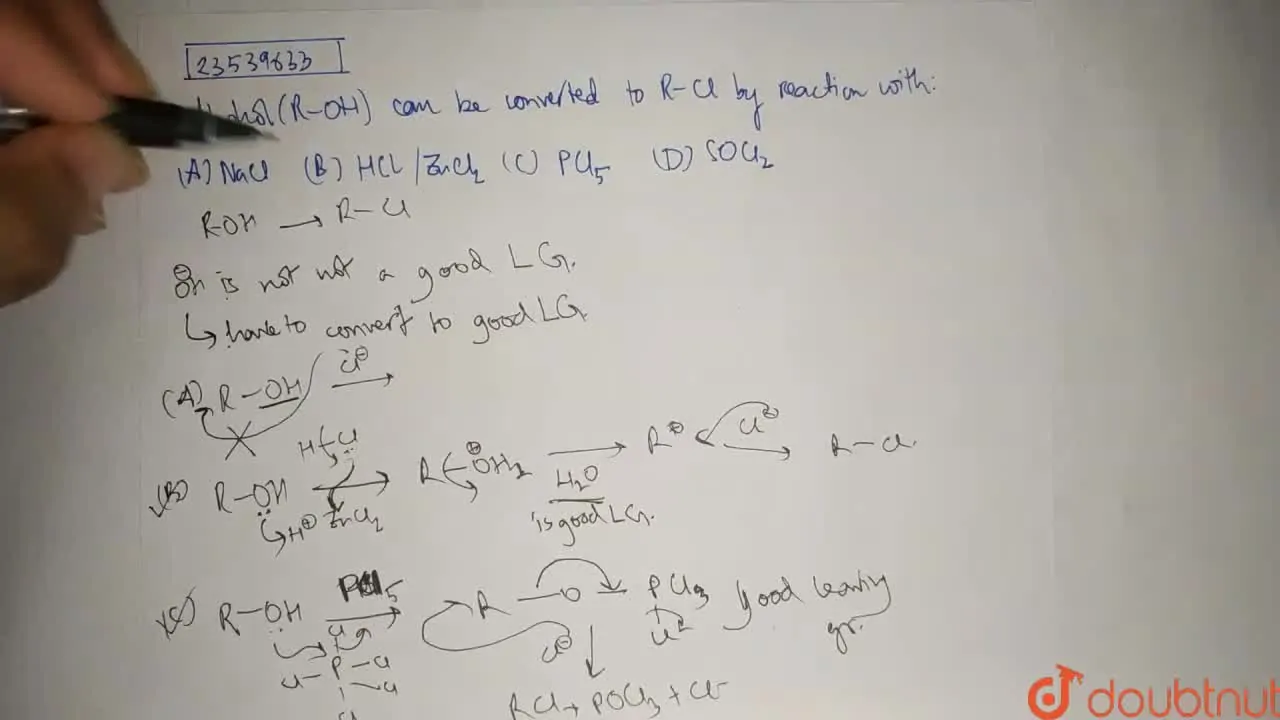 23539633
(R-OH) can be converted to R-Cl by reaction with:
(A) NaCl (B) HCl/ZnCl2 (C) PCl5 (D) SOCl2
R-OH → R-Cl
⊖OH is not not a good LG.
↳ have to convert to good LG
(A) R-OH Cl⊖ →
H-Cl
(B) R-OH → R-OH2 → R⊕ Cl⊖ → R-Cl
H⊕ ZnCl2 H2O
is good LG.
(C) R-OH PCl5 → R-O PCl3 good leaving gr.
Cl
Cl-P-Cl Cl⊖
Cl
RCl + POCl3 + Cl-
doubtnut